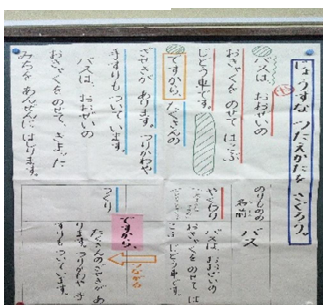 じょうずな つたえかたを さぐろう。
バスは、おおぜいの
おきゃくを のせて はこぶ
じどう車です。
ですから、たくさんの
ざせきが あります。つりかわや
手すりも ついて います。
バスは、おおぜいの
おきゃくを のせて、きまった
みちを あんぜんに はしります。
のりものの
名前
バス
やくわり
バスは おおぜいの
おきゃくを のせて は
こぶ じどう車です。
ですから、
つくり
たくさんの ざせきが あ
ります。つりかわや 手
すりも ついています。